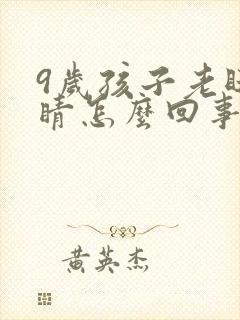 9歲孩子老眨
睛怎麼回事
黃英杰